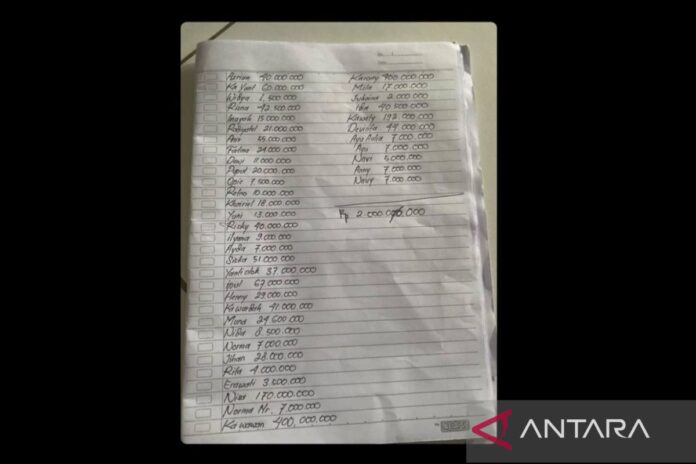 Azrina 40.000.000
Ka Yant 60.000.000
Widya 1.500.000
Risna 42.500.000
Inayah 15.000.000
21.000.000
55.000.000
Fatma 24.000.000
Dewi 11.000.000
Puput 20.000.000
7.500.000
Retno 10.000.000
Khairiat 18.000.000
Yuni 13.000.000
Rizky 40.000.000
Ilyana 9.000.000
Ayda 7.000.000
Siska 51.000.000
Yanti olok 37.000.000
67.000.000
Henny 29.000.000
Ka Wardah 41.000.000
Muna 24.600.000
Nisa 8.500.000
Norma 7.000.000
Jihan 28.000.000
Rita 4.000.000
Erawati 3.500.000
Nisa 170.000.000
Norma Nr. 7.000.000
Ka wawan 400.000.000
Karany 400.000.000
Mila 17.000.000
Julaina 2.000.000
Ibu 40.500.000
Kawaty 192.000.000
Devinta 44.000.000
Ayu Aulia 7.000.000
Ayu 7.000.000
Navi 5.000.000
Anny 7.000.000
Navy 7.000.000
Rp 2.000.000.000
ANTARA